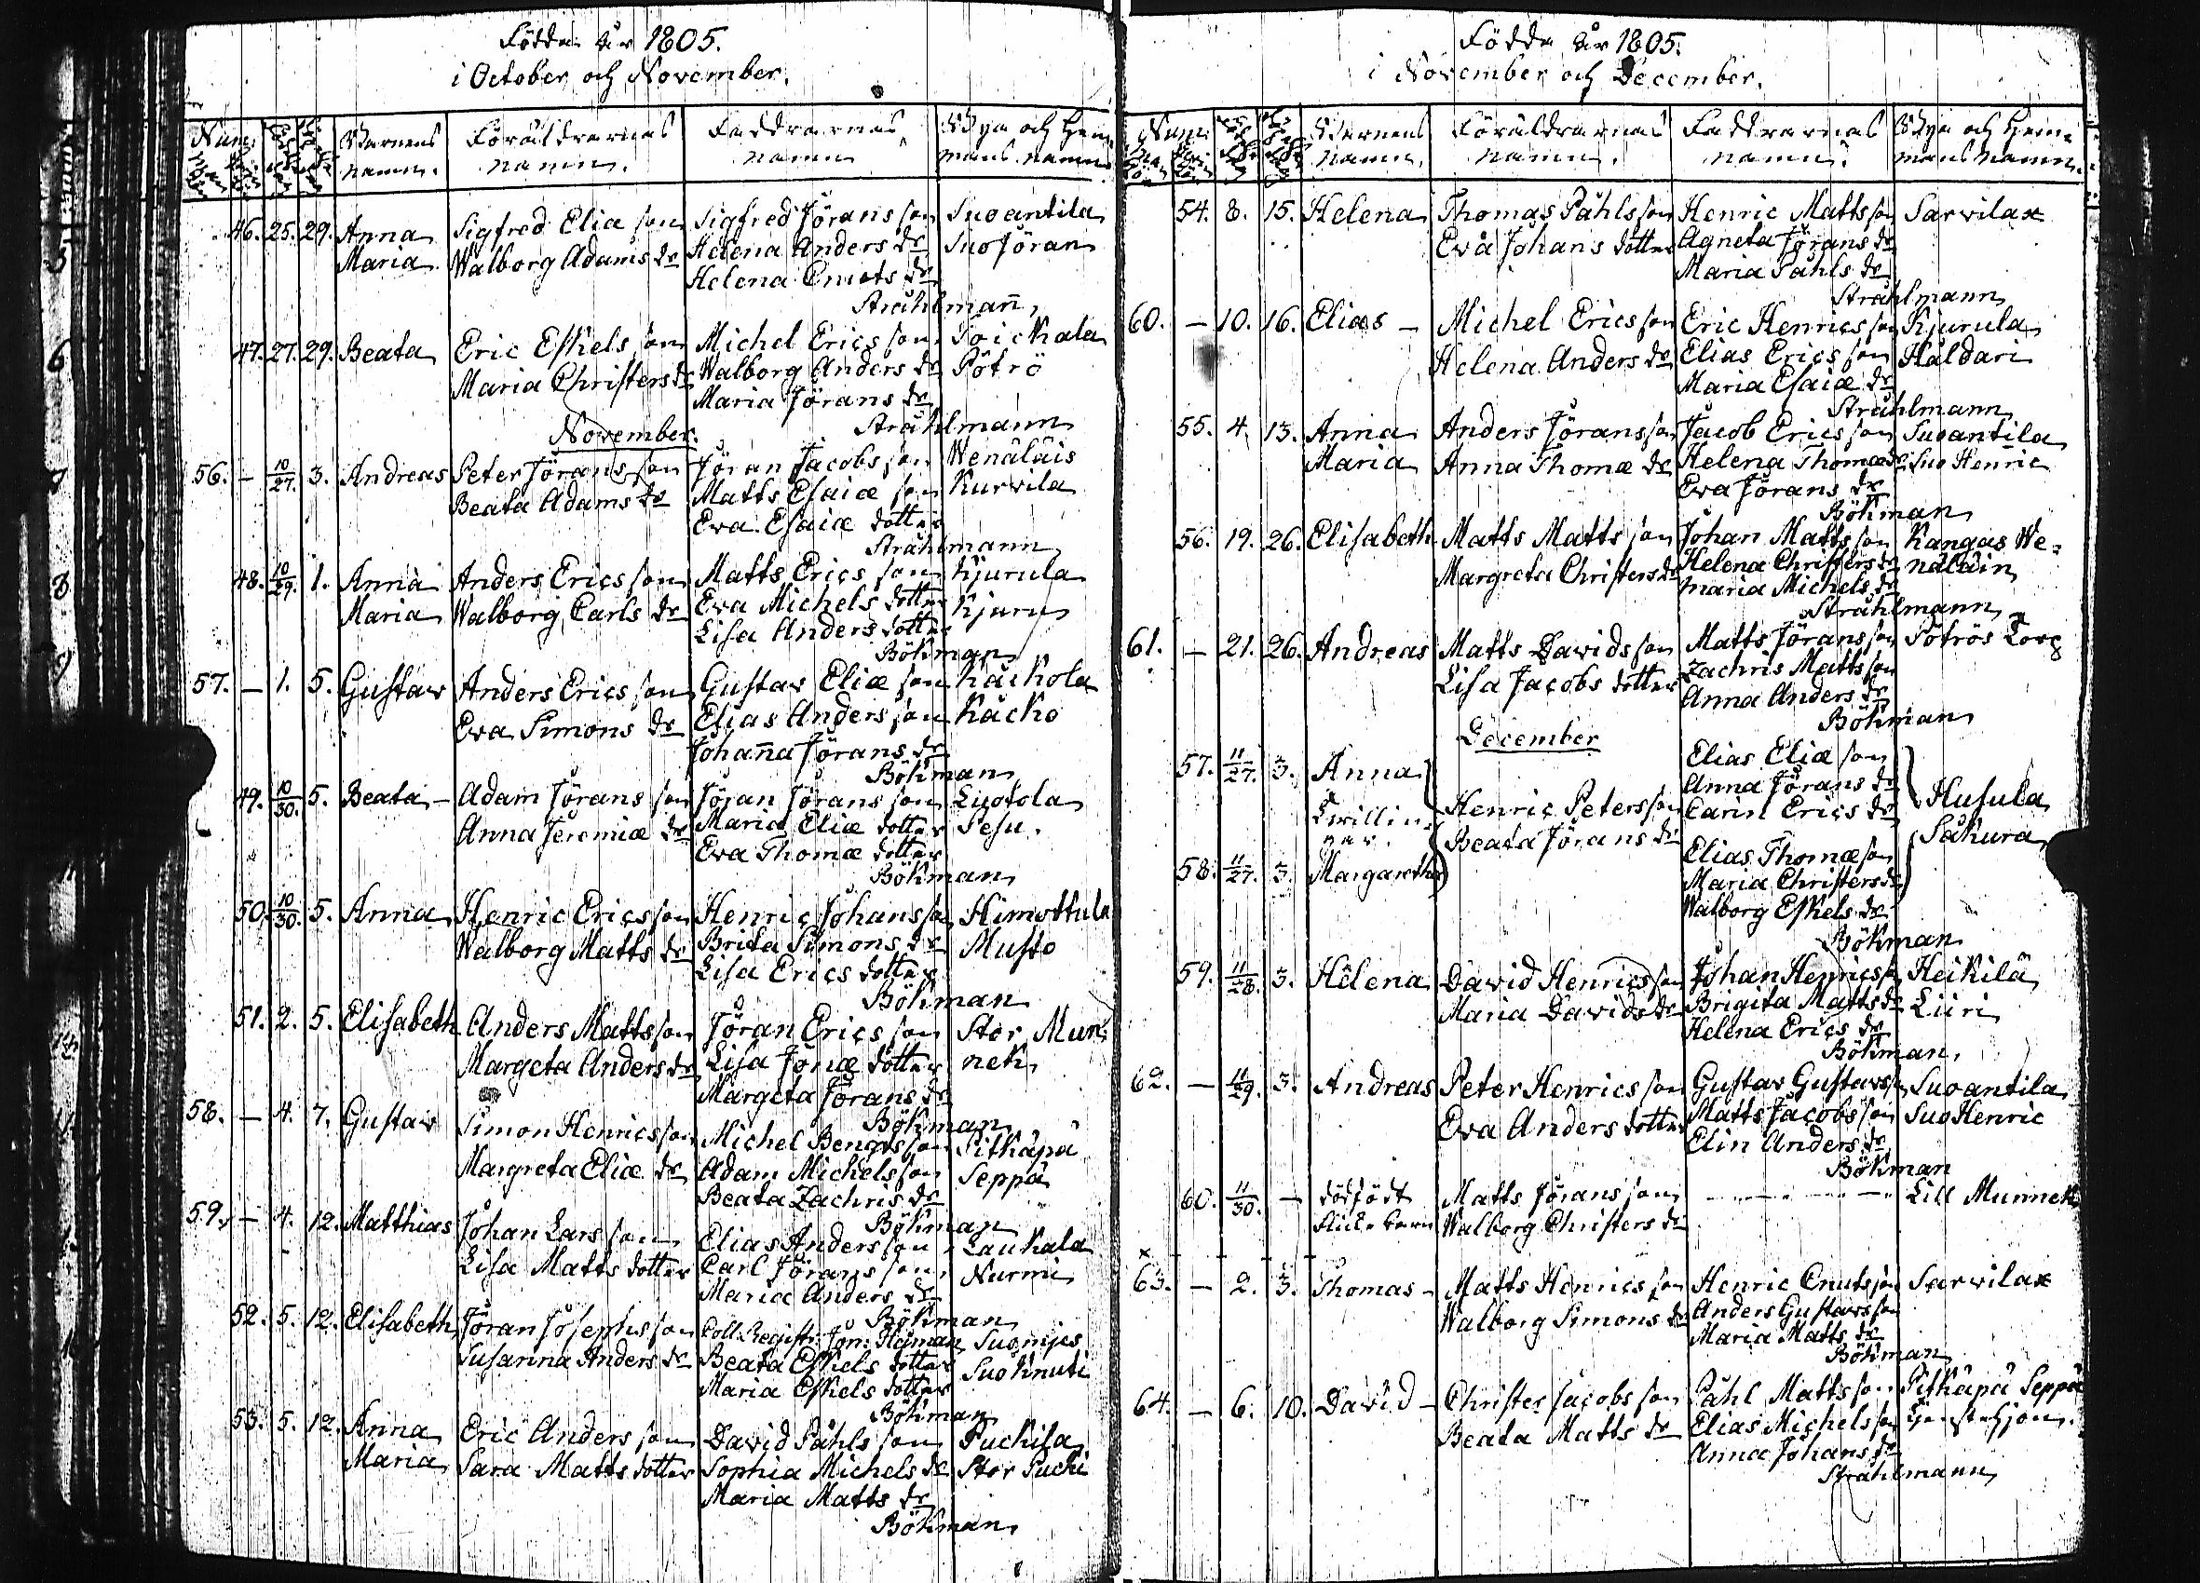 Födde år 1805.
i October och November.
Num:
Barnens namn.
Föräldrarnas namn.
Faddrarnas namn
Bya och Hemmans namn
46. 25. 29. Anna Sigfred Eliæ son Sigfred Jörans son Suoantila
Maria Walborg Adams dr Helena Anders dr Suo Jöran
Helena Cnuts dr
Stråhlmann
47. 27. 29. Beata Eric Eskels son Michel Erics son Toickala
Maria Christers dr Walborg Anders dr Pötrö
Maria Jörans dr
Stråhlmann
November.
56. – 10/27. 3. Andreas Peter Jörans son Jöran Jacobs son Wenäläis
Beata Adams dr Matts Esaiæ son Kurvila
Eva Esaiæ dotter
Stråhlmann
48. 10/29. 1. Anna Anders Erics son Matts Erics son Kjurula
Maria Walborg Carls dr Eva Michels dotter Kjuru
Lisa Anders dotter
Böhman
57. – 1. 5. Gustav Anders Erics son Gustav Eliæ son Käckola
Eva Simons dr Elias Anders son Käcko
Johanna Jörans dr
Böhman
49. 10/30. 5. Beata – Adam Jörans son Jöran Jörans son Liotola
Anna Jeremiæ dr Maria Eliæ dotter Pesu.
Eva Thomæ dotter
Böhman
50. 10/30. 5. Anna Henric Erics son Henric Johans son Himottula
Walborg Matts dr Brita Simons dr Musto
Lisa Erics dotter
Böhman
51. 2. 5. Elisabeth Anders Matts son Jöran Erics son Stor Mun-
Margeta Anders dr Lisa Jonæ dotter nek
Margeta Jörans dr
Böhman
58. – 4. 7. Gustav Simon Henrics son Michel Bengts son Pitkäpä
Margreta Eliæ dr Adam Michels son Seppä
Beata Zachris dr
Böhman
59. – 4. 12. Matthias Johan Lars son Elias Anders son Laukala
Lisa Matts dotter Carl Jörans son Nurmi
Maria Anders dr
Böhman
52. 5. 12. Elisabeth Jöran Josephs son Coll. Registr. Jörn: Heiman Suonijes
Susanna Anders dr Beata Eskels dotter Suo Knuti
Maria Eskels dotter
Böhman
53. 5. 12. Anna Eric Anders son David Påhls son Puckila
Maria Sara Matts dotter Sophia Michels dr Stor Pucki
Maria Matts dr
Böhman
Födde år 1805.
i November och December.
Num:
Barnens namn.
Föräldrarnas namn.
Faddrarnas namn.
Bya och Hemmans namn.
54. 8. 15. Helena Thomas Påhls son Henric Matts son Sarvilax
Eva Johans dotter Agneta Jörans dr
Maria Påhls dr
Stråhlmann
60. – 10. 16. Elias – Michel Erics son Eric Henrics son Kjurula
Helena Anders dr Elias Erics son Haldari
Maria Esaiæ dr
Stråhlmann
55. 4. 13. Anna Anders Jörans son Jacob Erics son Suoantila
Maria Anna Thomæ dr Helena Thomæ dr Suo Henric
Eva Jörans dr
Böhman
56. 19. 26. Elisabeth Matts Matts son Johan Matts son Kangas We-
Margreta Christers dr Helena Christers dr näläin
Maria Michels dr
Stråhlmann
61. – 21. 26. Andreas Matts Davids son Matts Jörans son Pötrös Torp
Lisa Jacobs dotter Zachris Matts son
Anna Anders dr
Böhman
December
57. 11/27. 3. Anna Elias Eliæ son
Anna Jörans dr
Twillingar. Henric Peters son Carin Erics dr Husula
Beata Jörans dr Elias Thomæ son Säkura
58. 11/27. 3. Margaretha Maria Christers dr
Walborg Eskels dr
Böhman
59. 11/28. 3. Helena David Henrics son Johan Henrics son Heikilä
Maria Davids dr Brigita Matts dr Liiri
Helena Erics dr
Böhman
62. – 11/29. 3. Andreas Peter Henrics son Gustav Gustavs son Suoantila
Eva Anders dotter Matts Jacobs son Suo Henric
Elin Anders dr
Böhman
60. 11/30. – dödfödt Matts Jörans son – – – – – Lill Munnek
flicke barn Walborg Christers dr
63. – 2. 3. Thomas – Matts Henrics son Henric Cnuts son Sarvilax
Walborg Simons dr Anders Gustavs son
Maria Matts dr
Böhman
64. – 6. 10. David – Christer Jacobs son Påhl Matts son Pitkäpä Seppä
Beata Matts dr Elias Michels son tjenstehjon.
Anna Johans dr
Stråhlmann